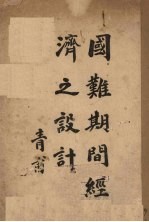 國難期間經
濟之設計